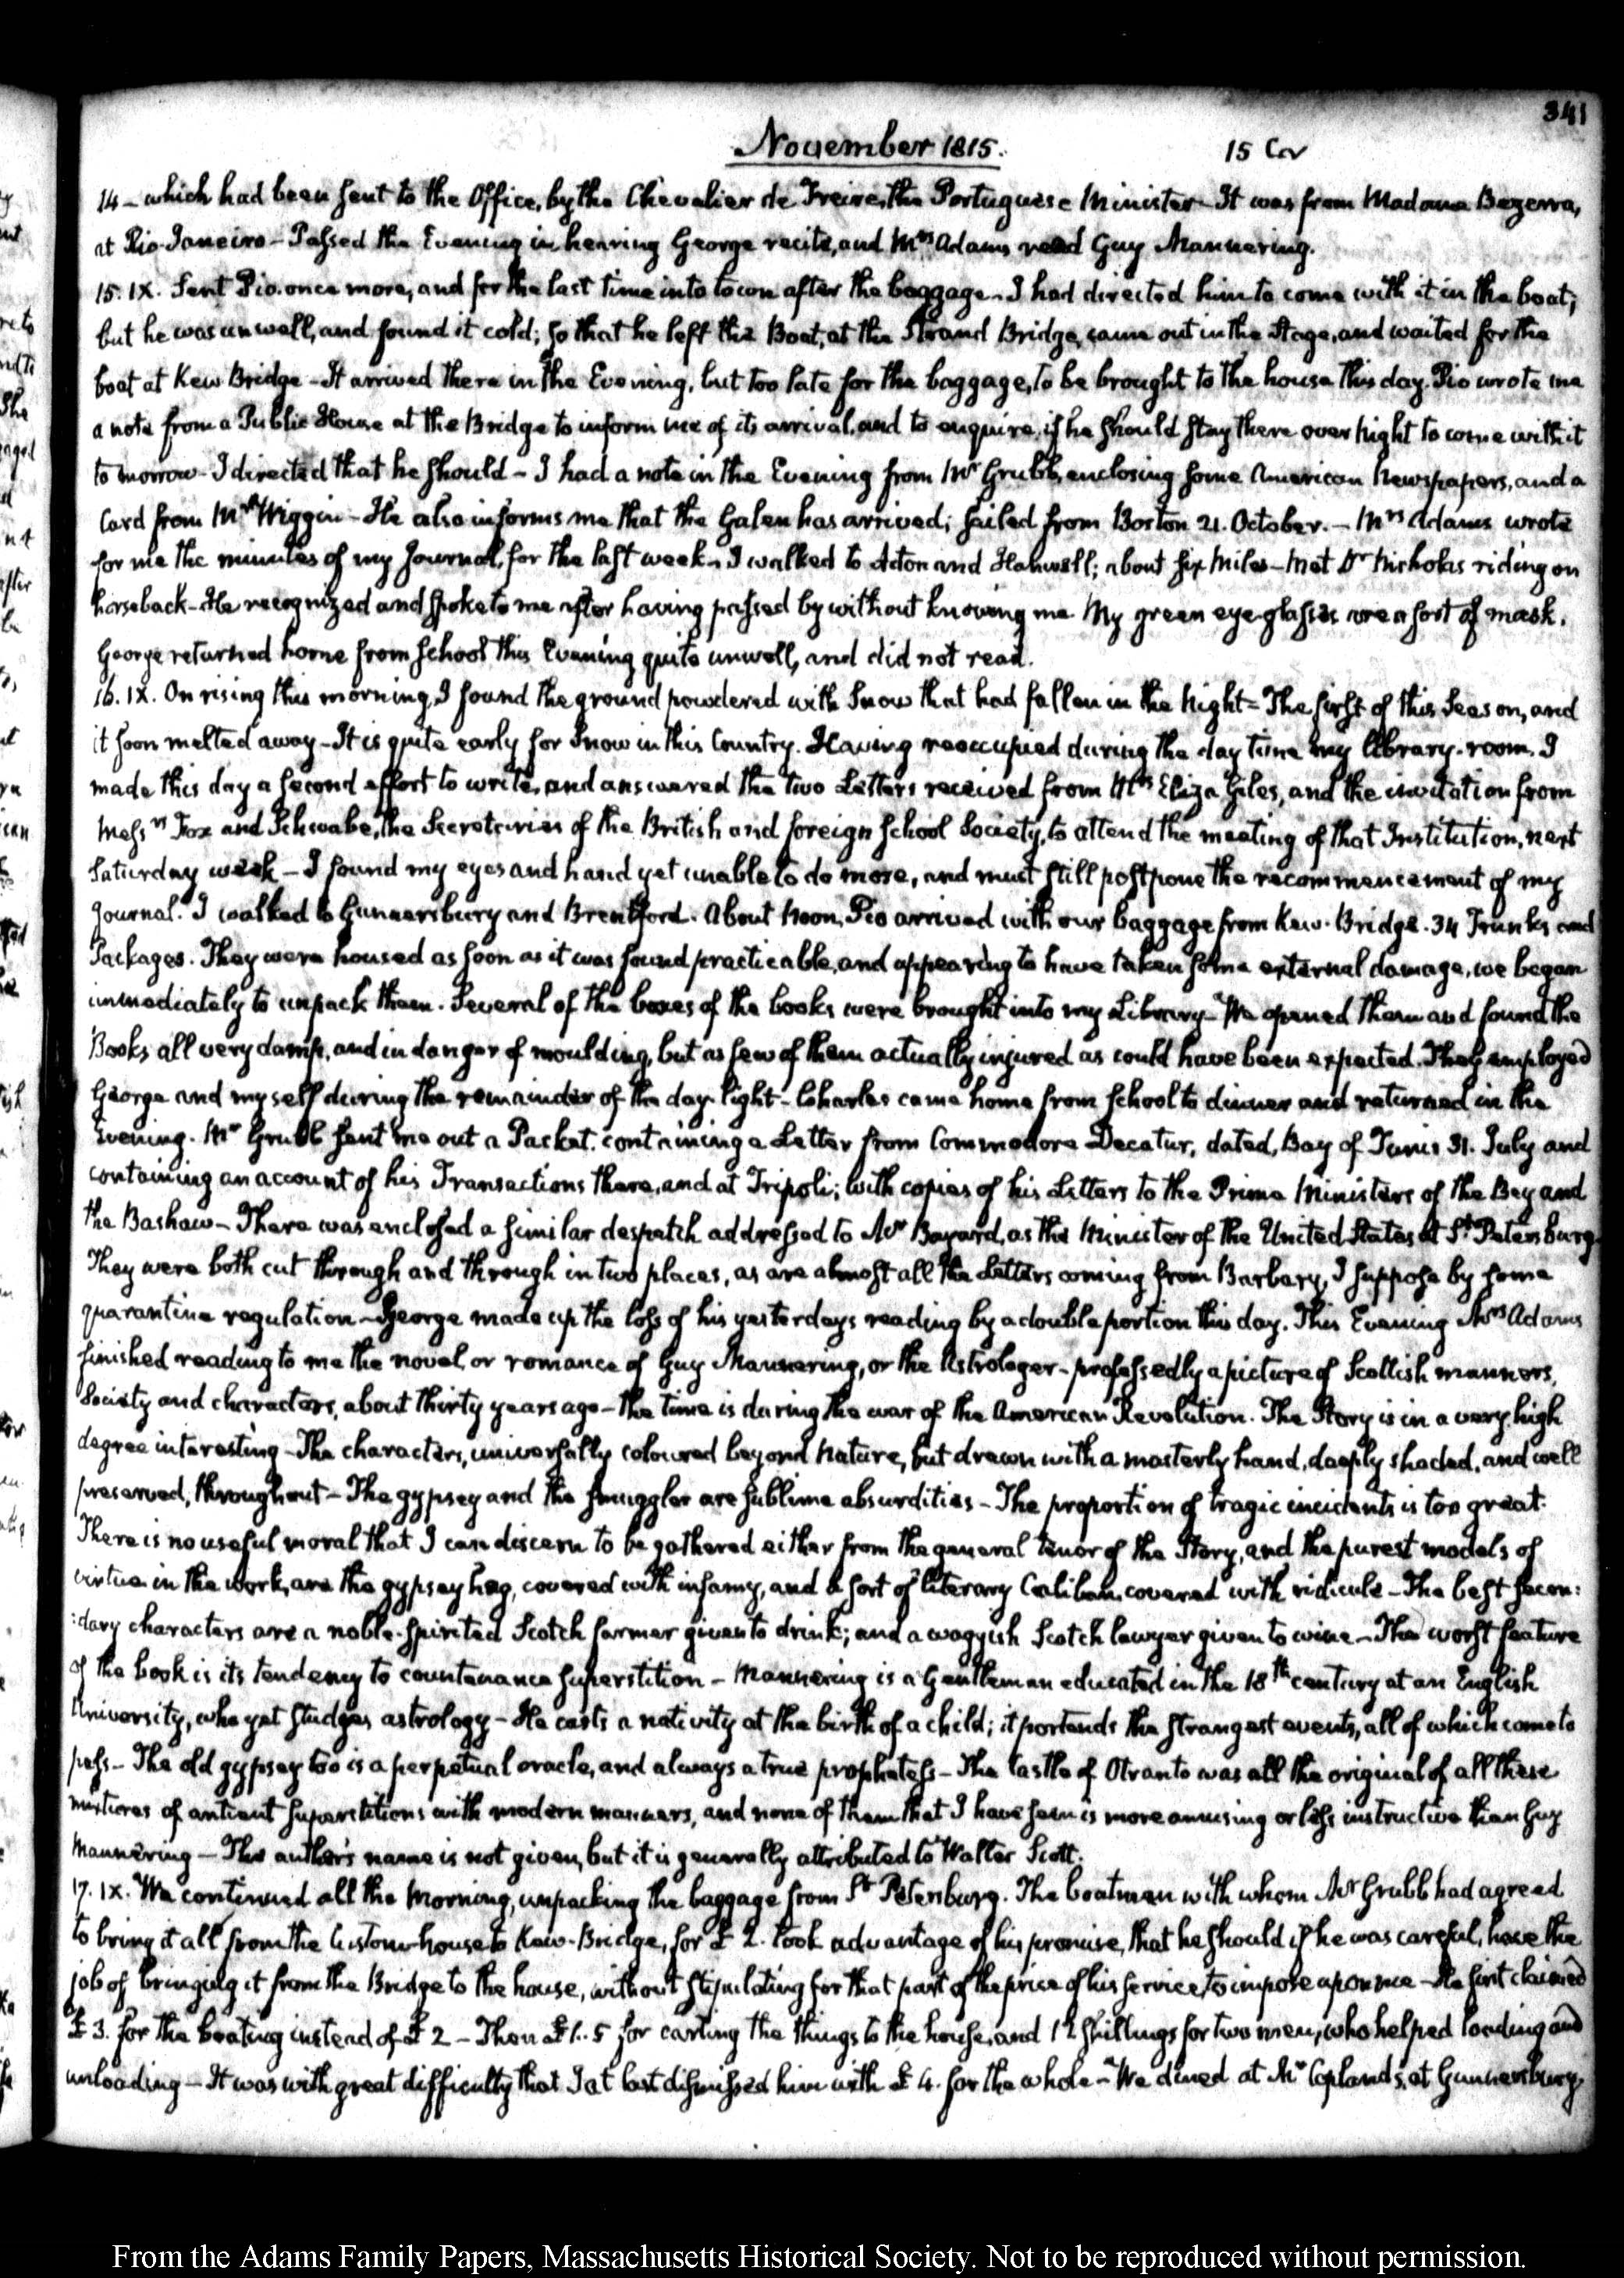 341
November 1815.
15 Cov
14 - which had been sent to the Office, by the Chevalier de Freire, the Portuguese Minister - It was from Madame Bezerra,
at Rio-Janeiro - Passed the Evening in hearing George recite, and Mrs Adams read Guy Mannering.
15. IX. Sent Pio once more, and for the last time into town after the baggage - I had directed him to come with it in the boat;
but he was unwell, and found it cold; so that he left the Boat, at the Strand Bridge, came out in the Stage, and waited for the
boat at Kew Bridge - It arrived there in the Evening, but too late for the baggage, to be brought to the house this day. Pio wrote me
a note from a Public House at the Bridge to inform me of its arrival, and to enquire, if he should stay there over night to come with it
to morrow - I directed that he should - I had a note in the Evening from Mr Grubb, enclosing some American Newspapers, and a
Card from Mr Wiggin - He also informs me that the Galen has arrived; sailed from Boston 21. October. - Mrs Adams wrote
for me the minutes of my Journal, for the last week - I walked to Acton and Hanwell; about six Miles - Met Dr Nicholas riding on
horseback - He recognized and spoke to me after having passed by without knowing me My green eye-glasses are a sort of mask.
George returned home from school this Evening quite unwell, and did not read.
16. IX. On rising this morning, I found the ground powdered with Snow that had fallen in the Night - The first of this Season, and
it soon melted away - It is quite early for Snow in this Country. Having reoccupied during the day time my library-room, I
made this day a second effort to write, and answered the two Letters received from Mrs Eliza Giles, and the invitation from
Messrs Fox and Schwabe, the Secretaries of the British and foreign School Society, to attend the meeting of that Institution, next
Saturday week - I found my eyes and hand yet unable to do more, and must still postpone the recommencement of my
Journal. I walked to Gunnersbury and Brentford. About Noon, Pio arrived with our baggage from Kew-Bridge. 34 Trunks and
Packages. They were housed as soon as it was found practicable, and appearing to have taken some external damage, we began
immediately to unpack them. Several of the boxes of the books were brought into my Library - We opened them and found the
Books all very damp, and in danger of moulding, but as few of them actually injured as could have been expected. They employed
George and myself during the remainder of the day-light - Charles came home from School to dinner and returned in the
Evening. Mr Grubb sent me out a Packet. containing a Letter from Commodore Decatur, dated, Bay of Tunis 31. July and
containing an account of his Transactions there, and at Tripoli; with copies of his Letters to the Prime Ministers of the Bey and
the Bashaw - There was enclosed a similar despatch addressed to Mr Bayard, as the Minister of the United States at St Petersburg.
They were both cut through and through in two places, as are almost all the Letters coming from Barbary, I suppose by some
quarantine regulation - George made up the loss of his yesterdays reading by a double portion this day. This Evening Mrs Adams
finished reading to me the novel, or romance of Guy Mannering, or the Astrologer - professedly a picture of Scottish manners,
Society and characters, about thirty years ago - the time is during the war of the American Revolution. The Story is in a very high
degree interesting - The characters, universally coloured beyond Nature, but drawn with a masterly hand, deeply shaded, and well
preserved, throughout - The gypsey and the smuggler are sublime absurdities - The proportion of tragic incidents is too great.
There is no useful moral that I can discern to be gathered either from the general tenor of the Story, and the purest models of
virtue in the work, are the gypsey hag, covered with infamy, and a sort of literary Caliban covered with ridicule - The best secon:
:dary characters are a noble-spirited Scotch farmer given to drink; and a waggish Scotch lawyer given to wine - The worst feature
of the book is its tendency to countenance superstition - Mannering is a Gentleman educated in the 18th century at an English
University, who yet studies astrology - He casts a nativity at the birth of a child; it portends the strangest events, all of which come to
pass - The old gypsey too is a perpetual oracle, and always a true prophetess - The Castle of Otranto was all the original of all these
mixtures of antient superstitions with modern manners, and none of them that I have seen is more amusing or less instructive than Guy
Mannering - The author's name is not given, but it is generally attributed to Walter Scott.
17. IX. We continued all the Morning, unpacking the baggage from St Petersburg. The boatman with whom Mr Grubb had agreed
to bring it all from the Custom-house to Kew-Bridge, for £ 2. took advantage of his promise, that he should if he was careful, have the
job of bringing it from the Bridge to the house, without stipulating for that part of the price of his service, to impose upon me - He first claimed
£ 3. for the boating instead of £ 2 - Then £ 1.. 5 for carting the things to the house, and 12 shillings for two men, who helped loading and
unloading - It was with great difficulty that I at last dismissed him with £ 4. for the whole - We dined at Mr Copland's, at Gunnersbury,
From the Adams Family Papers, Massachusetts Historical Society. Not to be reproduced without permission.